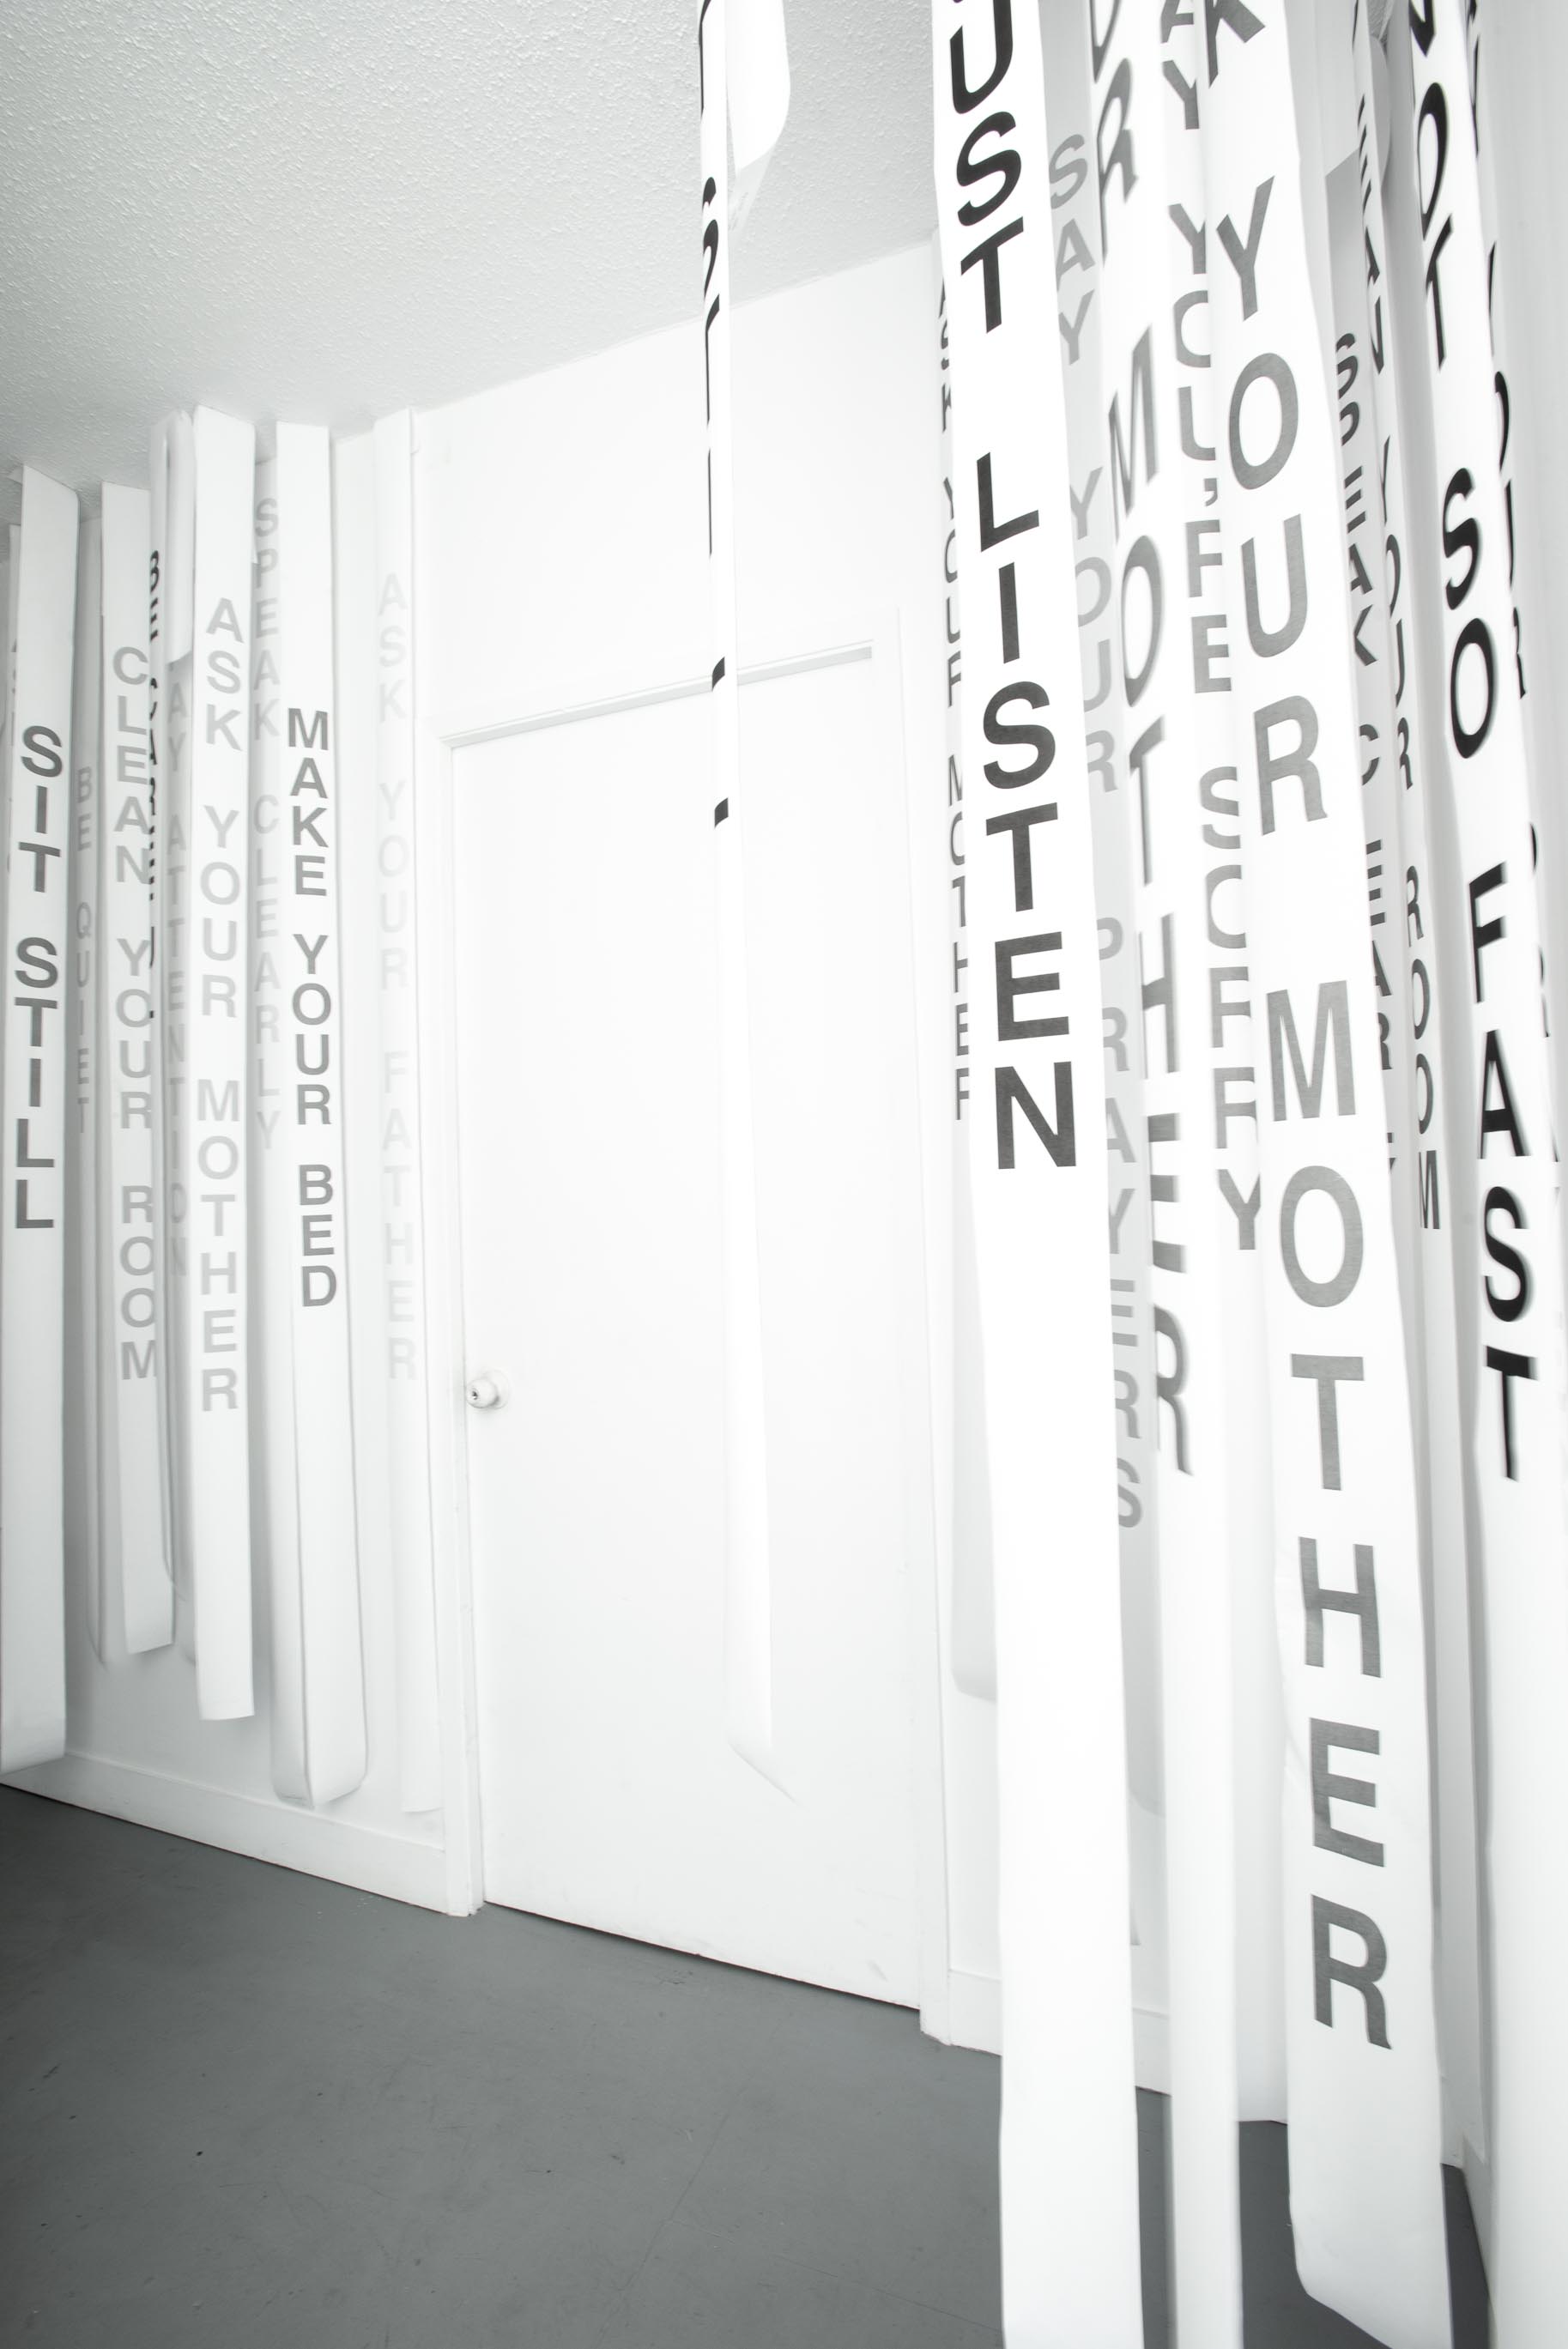 SIT STILL
BE QUIET
CLEAN YOUR ROOM
BE CAREFUL
PAY ATTENTION
ASK YOUR MOTHER
SPEAK CLEARLY
MAKE YOUR BED
ASK YOUR FATHER
ASK YOUR MOTHER
UST LISTEN
SAY YOUR PRAYERS
UR MOTHER
AY YOU'RE SORRY
K YOUR MOTHER
SPEAK CLEARLY
CLEAN YOUR ROOM
NOT SO FAST